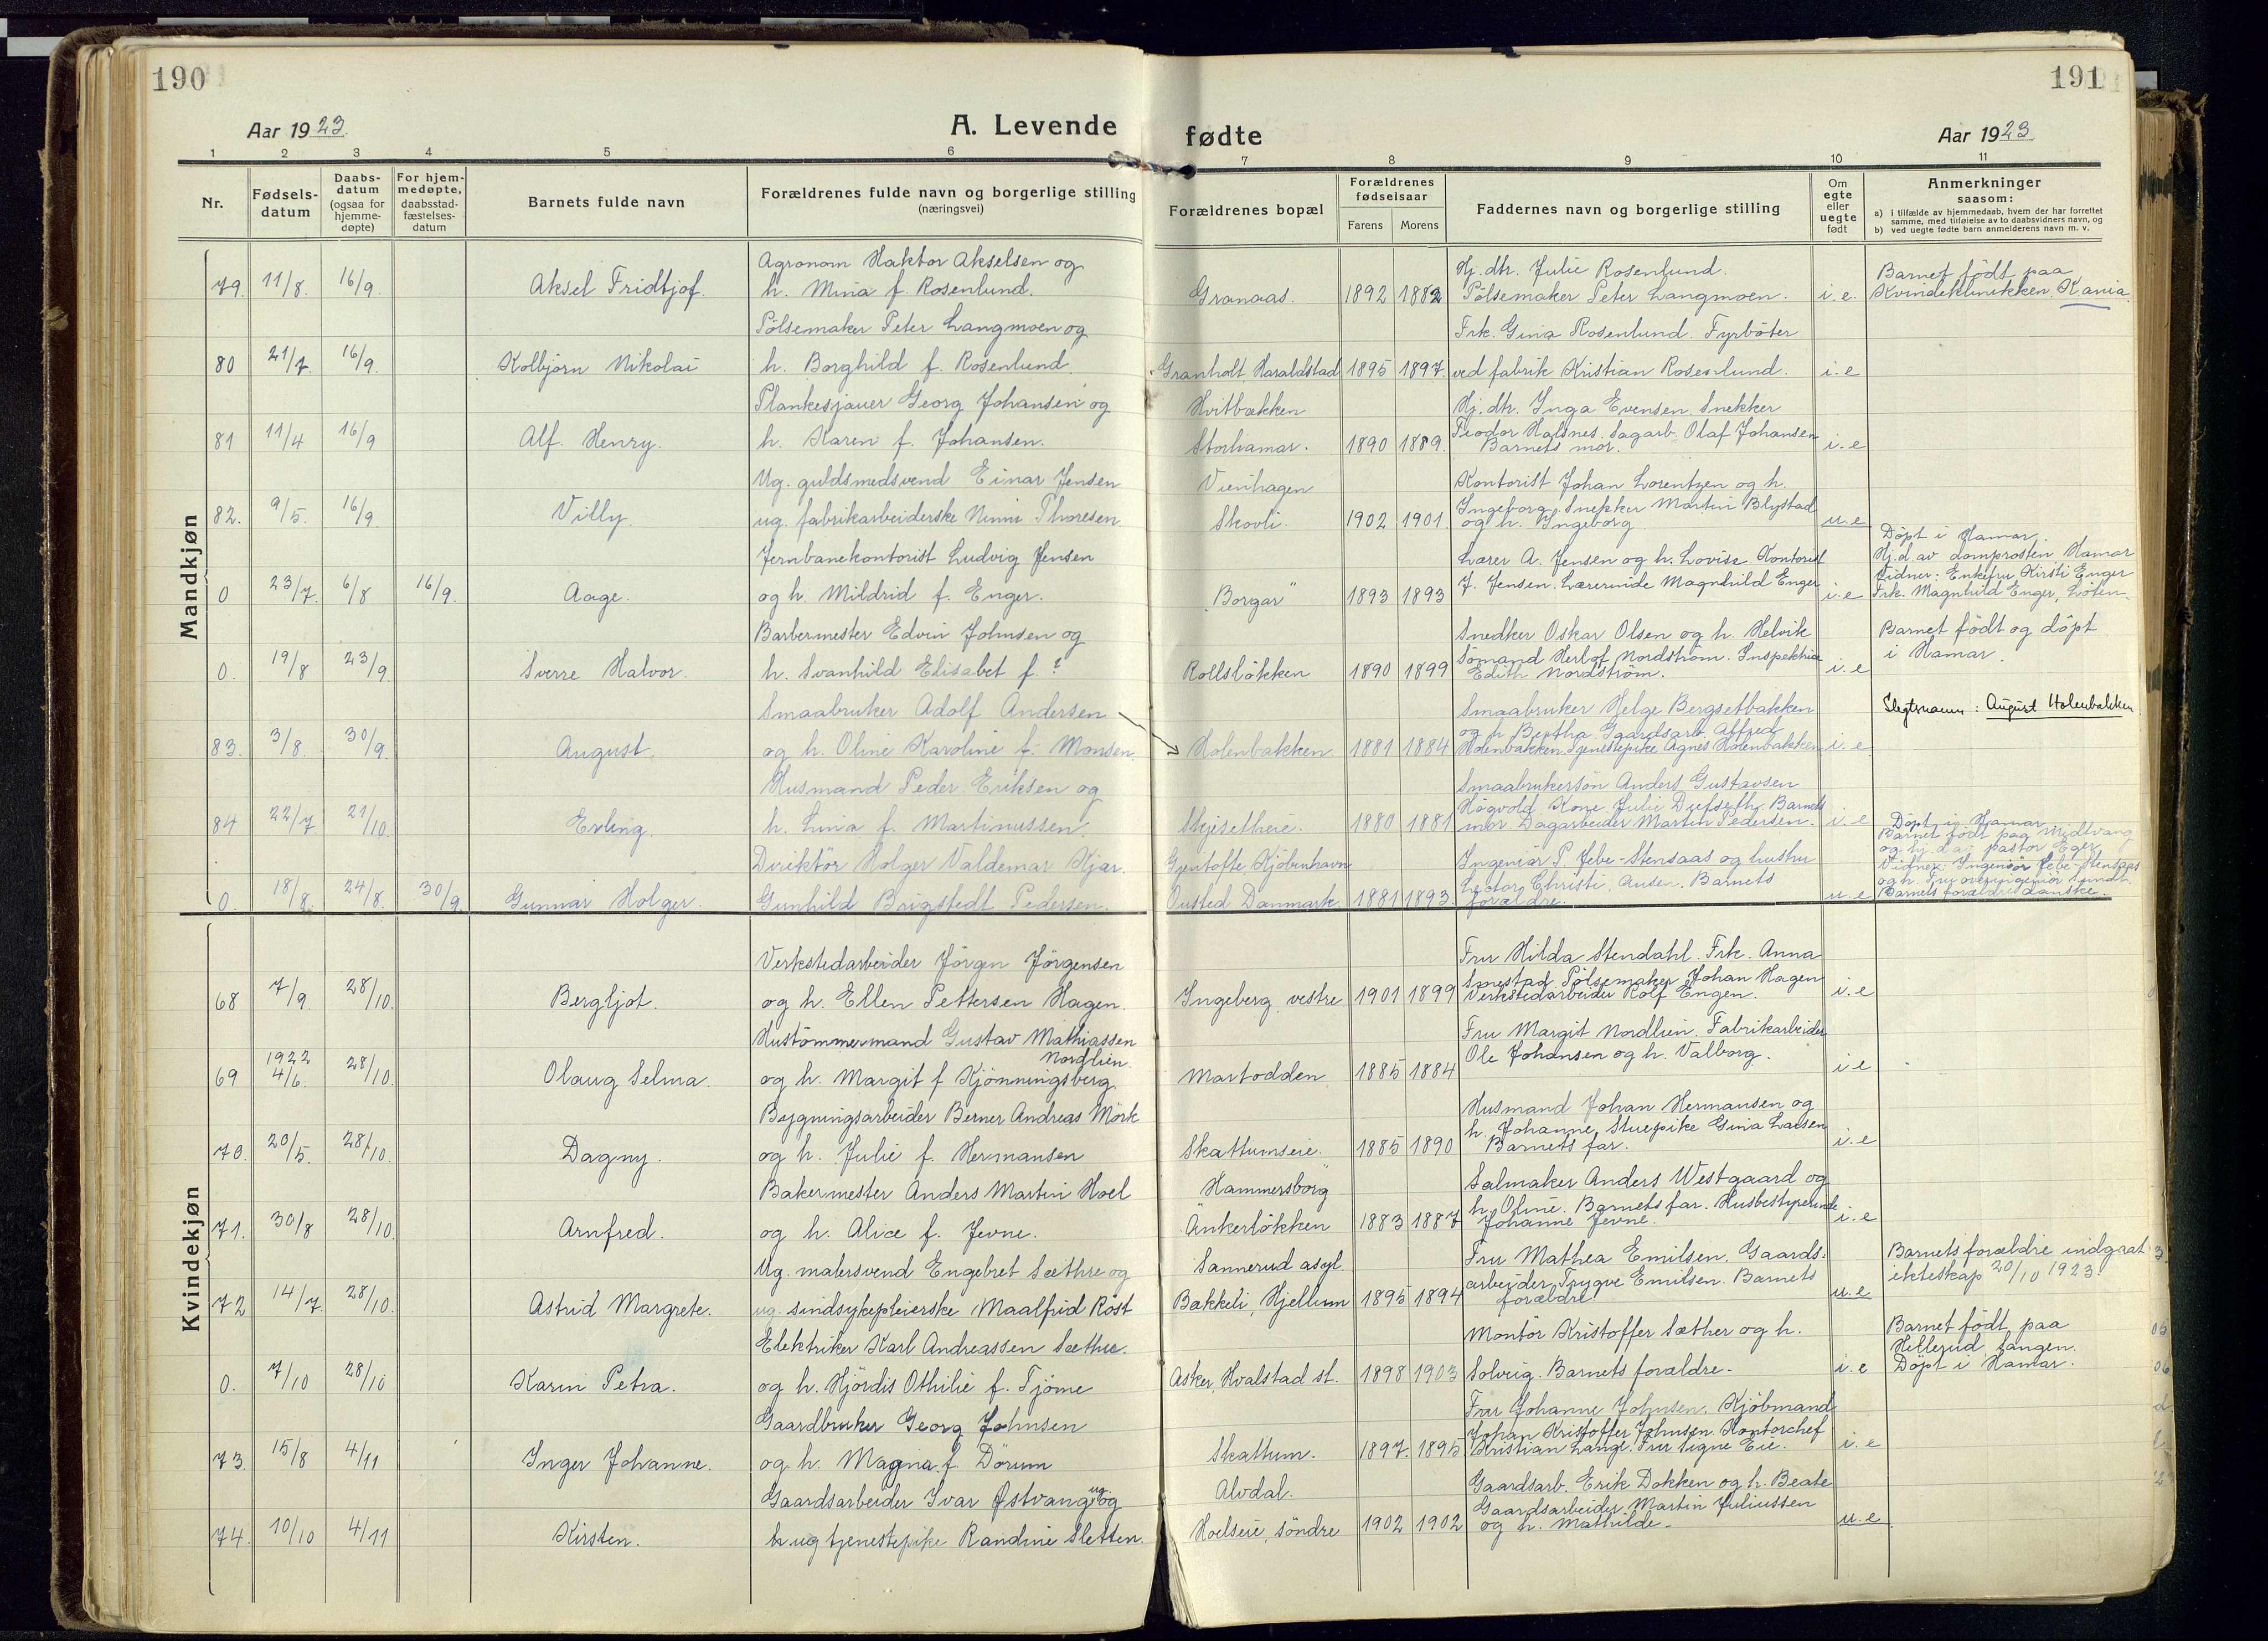 190
Aar 1923.
A. Levende
1 2 3 4 5 6
Nr.
Fødsels-
datum
Daabs-
datum
(ogsaa for
hjemme-
døpte)
For hjem-
medøpte,
daabsstad-
fæstelses-
datum
Barnets fulde navn
Forældrenes fulde navn og borgerlige stilling
(næringsvei)
Mandkjøn
Agronom Haktor Akselsen og
79. 11/8. 16/9. Aksel Fridtjof. h. Mina f. Rosenlund.
Pölsemaker Peter Langmoen og
80 21/7. 16/9. Kolbjörn Nikolai h. Borghild f. Rosenlund
Plankesjauer Georg Johansen og
81 11/4 16/9 Alf. Henry. h. Karen f. Johansen.
Ug. guldsmedsvend Einar Jensen
82. 9/5. 16/9. Villy. ug. fabrikarbeiderske Ninni Thoresen
Jernbanekontorist Ludvig Jensen
0 23/7. 6/8 16/9. Aage. og h. Mildrid f. Enger.
Barbermester Edvin Johnsen og
0. 19/8 23/9. Sverre Halvor. h. Svanhild Elisabet f. ?
Smaabruker Adolf Andersen
83. 3/8. 30/9. August. og h. Oline Karoline f. Monsen.
Husmand Peder Eriksen og
84 22/7. 21/10. Erling. h. Lina f. Martinussen.
Direktör Holger Valdemar Kjær.
0. 18/8. 24/8. 30/9. Gunnar Holger. Gunhild Brigstedt Pedersen.
Kvindekjøn
Verkstedarbeider Jörgen Jörgensen
68 7/9. 28/10. Bergljot. og h. Ellen Pettersen Hagen.
Hustömmermand Gustav Mathiassen
Nordlien.
69 1922 4/6. 28/10. Olaug Selma. og h. Margit f Kjönningsberg.
Bygningsarbeider Berner Andreas Mörk
70. 20/5. 28/10. Dagny. og h. Julie f. Hermansen
Bakermester Anders Martin Hoel
71. 30/8 28/10. Arnfred. og h. Alice f. Jevne.
Ug. malersvend Engebret Sæthre og
72 14/7. 28/10. Astrid Margrete. ug. sindsykepleierske Maalfrid Röst
Elektriker Karl Andreassen Sæther.
0. 7/10 28/10 Karin Petra. og h. Hjördis Othilie f. Tjöme
Gaardbruker Georg Johnsen
73. 15/8 4/11 Inger Johanne. og h. Magna f. Dörum
Gaardsarbeider Ivar Østvang ug. og
74. 10/10 4/11 Kirsten. ug tjenestepike Randine Sletten.
191
fødte
Aar 1923.
7 8 9 10 11
Forældrenes bopæl
Forældrenes
fødselsaar
Farens Morens
Faddernes navn og borgerlige stilling
Om
egte
eller
uegte
født
Anmerkninger
saasom:
a) i tilfælde av hjemmedaab, hvem der har forrettet
samme, med tilføielse av to daabsvidners navn, og
b) ved uegte fødte barn anmelderens navn m. v.
Hj. dtr. Julie Rosenlund. Barnet födt paa
Granaas. 1892 1882 Pölsemaker Peter Langmoen. i. e. Kvindeklinikken, Kania.
Frk. Gina Rosenlund. Fyrböter
Granholt Haraldstad 1895 1897. ved fabrik Kristian Rosenlund. i. e
Hvitbækken Hj. dtr. Inga Evensen. Snekker
Storhamar. 1890 1889. Peodor Halsnes. Sagarb. Olaf Johansen
Barnets mor. i. e
Vienhagen Kontorist Johan Lorentzen og h.
Ingeborg. Snekker Martin Blystad
Skovli. 1902 1901. og h. Ingeborg. u. e
Lærer A. Jensen og h. Lovise. Kontorist
"Borgar" 1893 1893 J. Jensen. Lærerinde Magnhild Enger i. e
Döpt i Hamar.
Hj. d. av domprosten Hamar
Vidner: Enkefru Kirsti Enger
Frk. Magnhild Enger, Löten.
Snedker Oskar Olsen og h. Helvik
Sömand Herlof Nordström. Inspektrice
Rollslökken 1890 1899 Edith Nordström. i. e
Barnet födt og döpt
i Hamar.
Smaabruker Helge Bergsetbakken
og h Bertha. Gaardsarb. Alfred
Holenbakken. 1881 1884 Holenbakken. Tjenestepike Agnes Holenbakken i. e
Slegtsnavn: August Holenbakken
Smaabrukersön Anders Gustavsen
Högvold. Kone Julie Dufseth. Barnets
Skjesetheie. 1880 1881 mor. Dagarbeider Martin Pedersen. i. e
Gjentofte Kjöbenhavn Ingeniör P. Jebe-Stensaas og hustru
Lector Christi. Ausen. Barnets
Ousted Danmark. 1881 1893 forældre. u. e
Döpt i Hamar
Barnet födt paa Midtvang
og hj. d. av pastor Eger
Vidner: Ingeniör Jebe-Stensaas
og h. Fru overingeniör Lund.
Barnets forældre danske.
Fru Hilda Stendahl. Frk. Anna
Smestad. Pölsemaker Johan Hagen
Ingeberg, vestre 1901 1899 Verkstedarbeider Rolf Engen. i. e
Fru Margit Nordlien. Fabrikarbeider
Martodden 1885 1884 Ole Johansen og h. Valborg. i e
Husmand Johan Hermansen og
h. Johanne. Stuepike Gina Larsen
Skattumseie. 1885 1890 Barnets far. i. e
"Hammersborg" Salmaker Anders Westgaard og
h. Oline. Barnets far. Husbestyrerinde
Ankerlökken 1883 1887 Johanne Jevne. i. e
Sannerud asyl. Fru Mathea Emilsen. Gaards-
arbeider Trygve Emilsen. Barnets
Bækkeli, Hjellum 1895 1894 forældre. u. e
Barnets forældre indgaat
ekteskap 20/10 1923.
Montör Kristoffer Sæther og h.
Asker, Hvalstad st. 1898 1903 Solveig. Barnets forældre. i. e
Barnet födt paa
Hellerud, Tangen.
Döpt i Hamar.
Fru Johanne Johnsen. Kjöbmand
Johan Kristoffer Johnsen. Kontorchef
Skattum. 1897. 1895 Kristian Lange. Fru Signe Eie. i. e
Alvdal. Gaardsarb. Erik Dokken og h. Beate
Gaardsarbeider Martin Juliussen
Hoelseie, söndre 1902 1902 og h. Mathilde. u. e